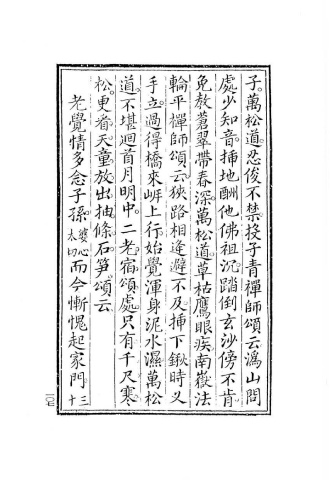 子。萬松道。忍俊不禁。投子青禪師頌云。溈山問
處少知音。揷地酬他佛祖沉。踏倒玄沙傍不肯。
免敎蒼翠帶春深。萬松道。草枯鷹眼疾。南嶽法
輪平禪師頌云。狹路相逢避不及。揷下鍬時义
手立。過得橋來㟁上行。始覺渾身泥水濕。萬松
道。不堪迴首月明中。二老宿頌處只有千尺寒
松。更看天童放出抽條石笋。頌云。
老覺情多念子孫。婆心太切而今慚愧起家門。十三
二〇七